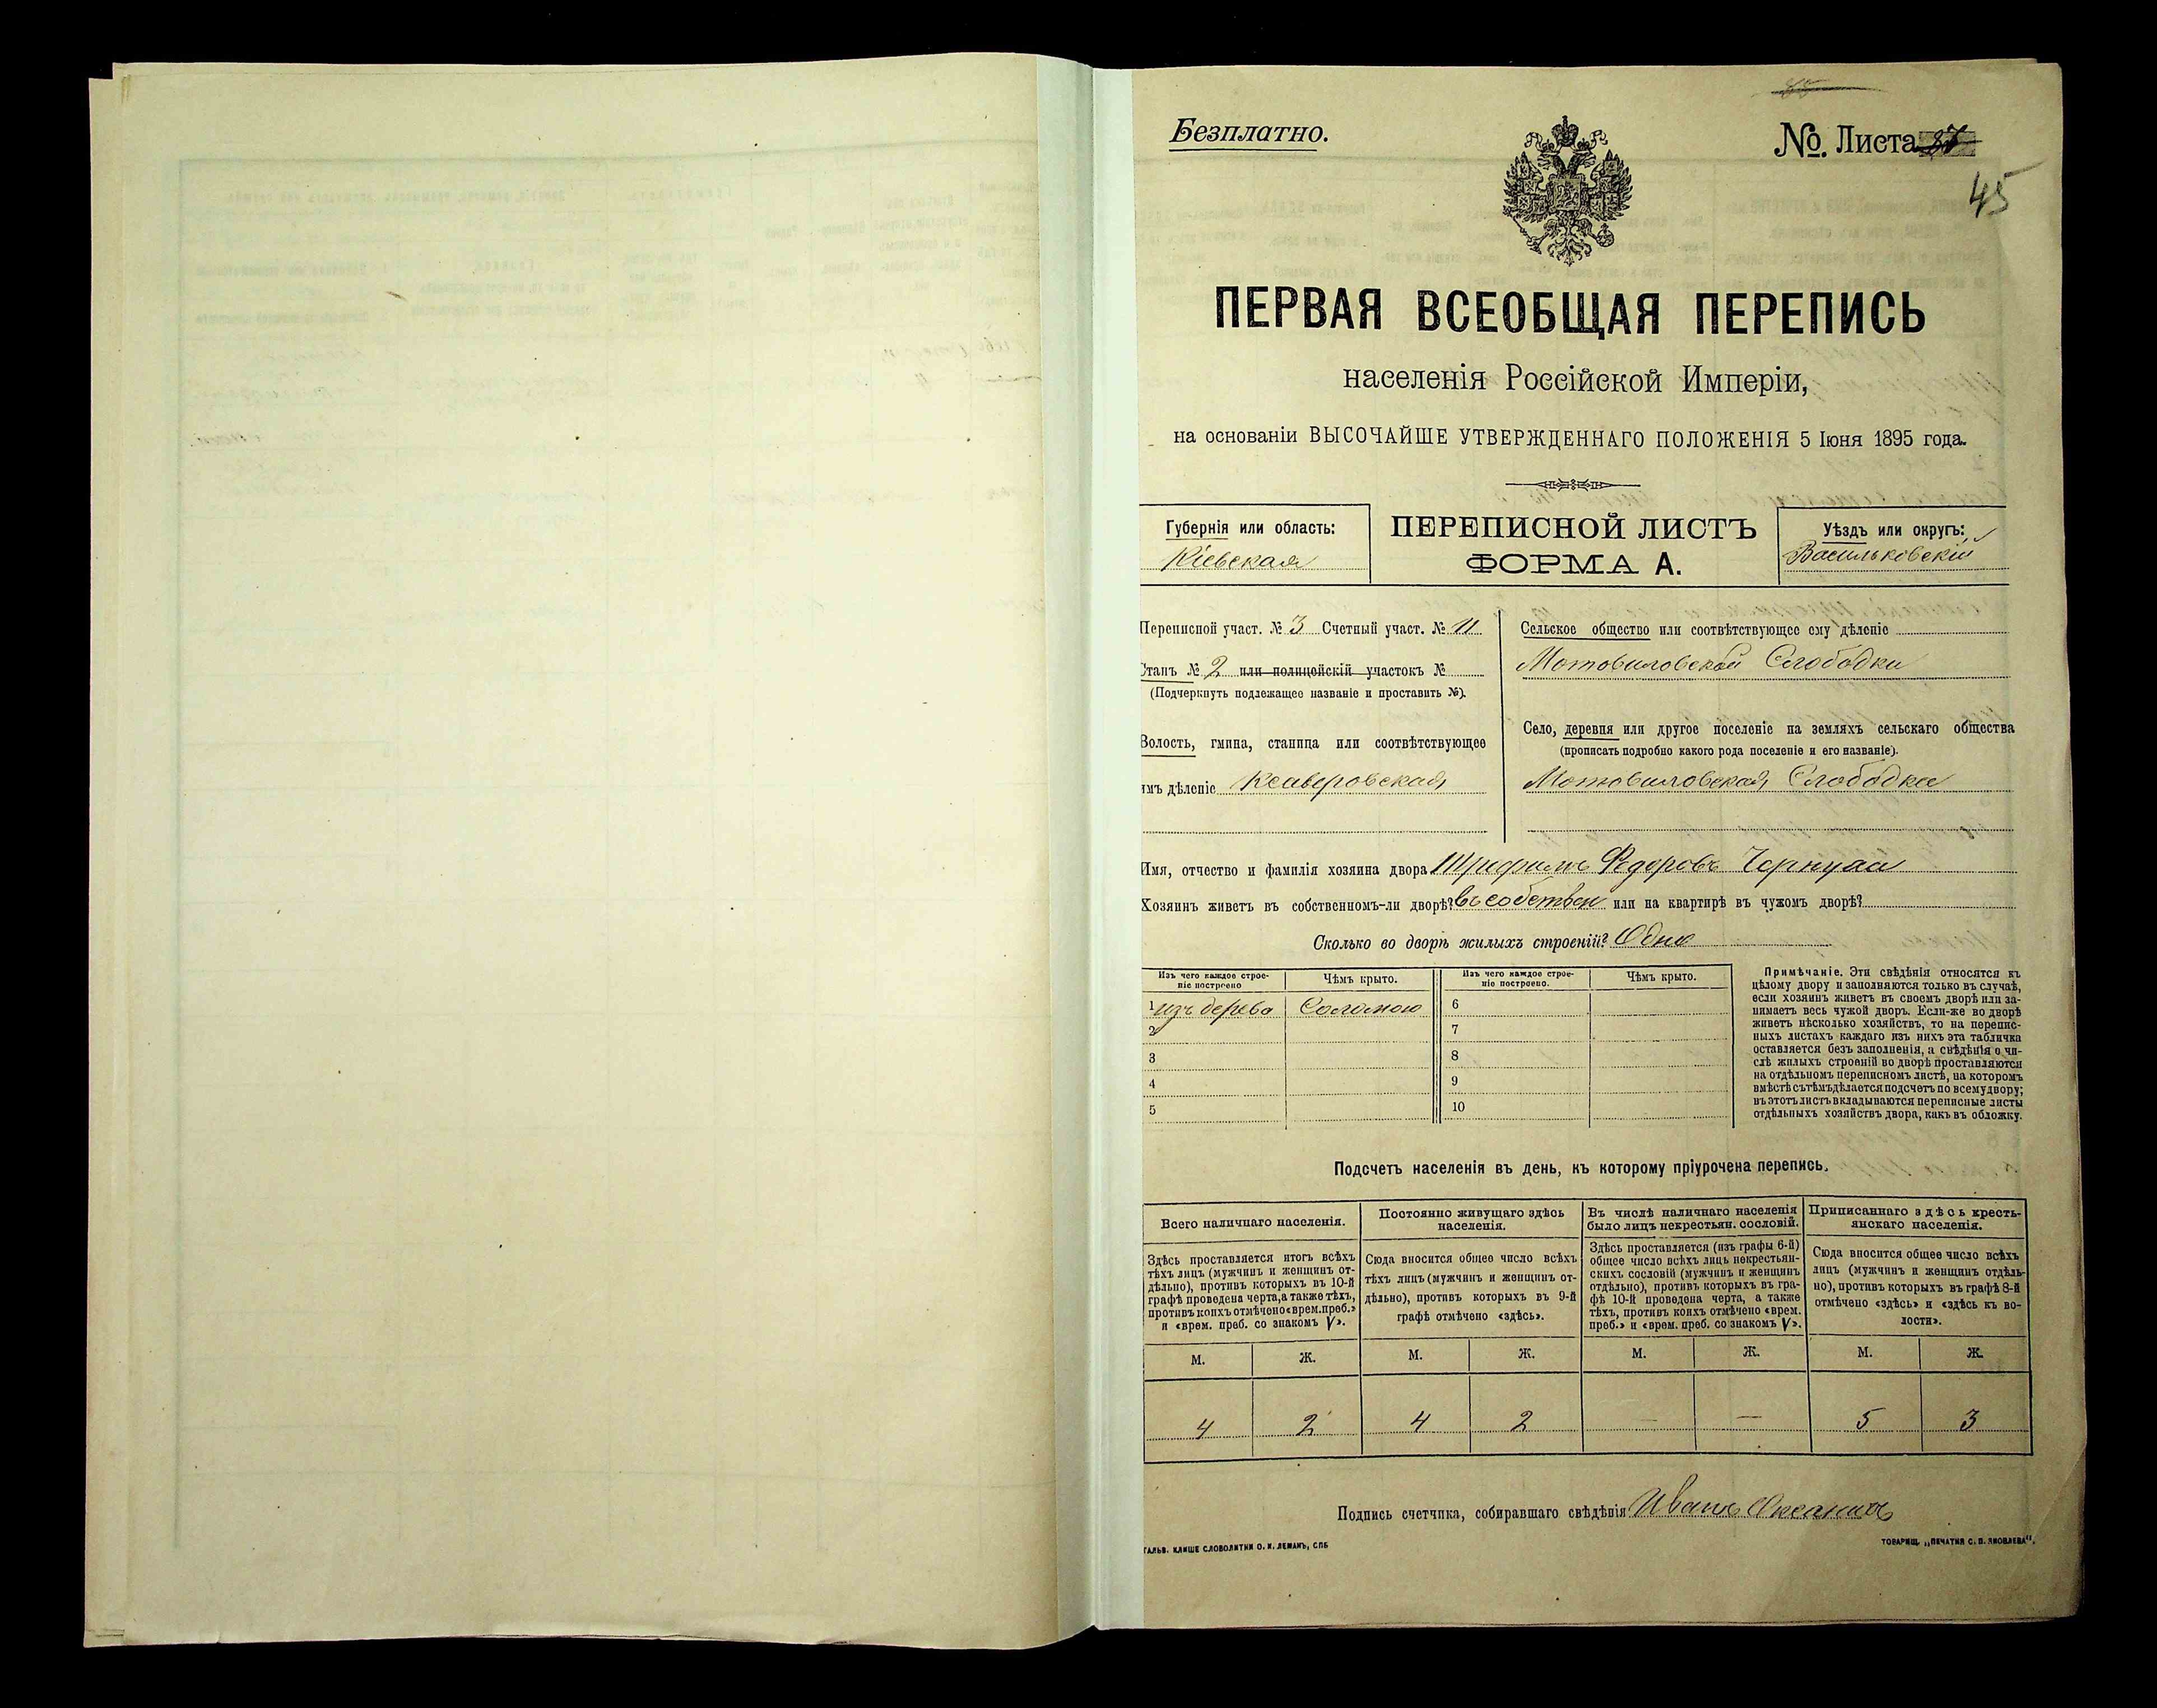 Безплатно.
№. Листа 37
45
ПЕРВАЯ ВСЕОБЩАЯ ПЕРЕПИСЬ
населенія Россійской Имперіи,
на основаніи ВЫСОЧАЙШЕ УТВЕРЖДЕННАГО ПОЛОЖЕНІЯ 5 Іюня 1895 года.
Губернія или область:
Кіевская
ПЕРЕПИСНОЙ ЛИСТЪ
ФОРМА А.
Уѣздъ или округъ:
Васильковскій
Переписной участ. № 3 Счетный участ. № 11
Станъ № 2 или полицейскій участокъ №
(Подчеркнуть подлежащее названіе и проставить №).
Волость, гмина, станица или соотвѣтствующее
имъ дѣленіе Ксаверовская
Сельское общество или соотвѣтствующее ему дѣленіе
Мотовиловской Слободки
Село, деревня или другое поселеніе на земляхъ сельскаго общества
(прописать подробно какого рода поселеніе и его названіе).
Мотовиловская Слободка
Имя, отчество и фамилія хозяина двора Трифимъ Федоровъ
Хозяинъ живетъ въ собственномъ-ли дворѣ? въ собствен или на квартирѣ въ чужомъ дворѣ?
Сколько во дворѣ жилыхъ строеній? Одно
Изъ чего каждое строе-
ніе построено
Чѣмъ крыто.
Изъ чего каждое строе-
ніе построено.
Чѣмъ крыто.
1 изъ дерева Соломою 6
2 7
3 8
4 9
5 10
Примѣчаніе. Эти свѣдѣнія относятся къ
цѣлому двору и заполняются только въ случаѣ,
если хозяинъ живетъ въ своемъ дворѣ или за-
нимаетъ весь чужой дворъ. Если-же во дворѣ
живетъ нѣсколько хозяйствъ, то на перепис-
ныхъ листахъ каждаго изъ нихъ эта табличка
оставляется безъ заполненія, а свѣдѣнія о чи-
слѣ жилыхъ строеній во дворѣ проставляются
на отдѣльномъ переписномъ листѣ, на которомъ
вмѣстѣ съ тѣмъ дѣлается подсчетъ по всему двору;
въ этотъ листъ вкладываются переписные листы
отдѣльныхъ хозяйствъ двора, какъ въ обложку.
Подсчетъ населенія въ день, къ которому пріурочена перепись.
Всего наличнаго населенія.
Здѣсь проставляется итогъ всѣхъ
тѣхъ лицъ (мужчинъ и женщинъ от-
дѣльно), противъ которыхъ въ 10-й
графѣ проведена черта, а также тѣхъ,
противъ коихъ отмѣчено «врем. преб.»
и «врем. преб. со знакомъ V».
Постоянно живущаго здѣсь
населенія.
Сюда вносится общее число всѣхъ
тѣхъ лицъ (мужчинъ и женщинъ от-
дѣльно), противъ которыхъ въ 9-й
графѣ отмѣчено «здѣсь».
Въ числѣ наличнаго населенія
было лицъ некрестьян. сословій.
Здѣсь проставляется (изъ графы 6-й)
общее число всѣхъ лицъ некрестьян-
скихъ сословій (мужчинъ и женщинъ
отдѣльно), противъ которыхъ въ гра-
фѣ 10-й проведена черта, а также
тѣхъ, противъ коихъ отмѣчено «врем.
преб.» и «врем. преб. со знакомъ V».
Приписаннаго здѣсь кресть-
янскаго населенія.
Сюда вносится общее число всѣхъ
лицъ (мужчинъ и женщинъ отдѣль-
но), противъ которыхъ въ графѣ 8-й
отмѣчено «здѣсь» и «здѣсь къ во-
лости».
М. Ж. М. Ж. М. Ж. М. Ж.
4 2 4 2 — — 5 3
Подпись счетчика, собиравшаго свѣдѣнія Иванъ
ГАЛЬВ. КЛИШЕ СЛОВОЛИТНИ О. И. ЛЕМАНЪ, СПБ
ТОВАРИЩ. „ПЕЧАТНЯ С. П. ЯКОВЛЕВА".